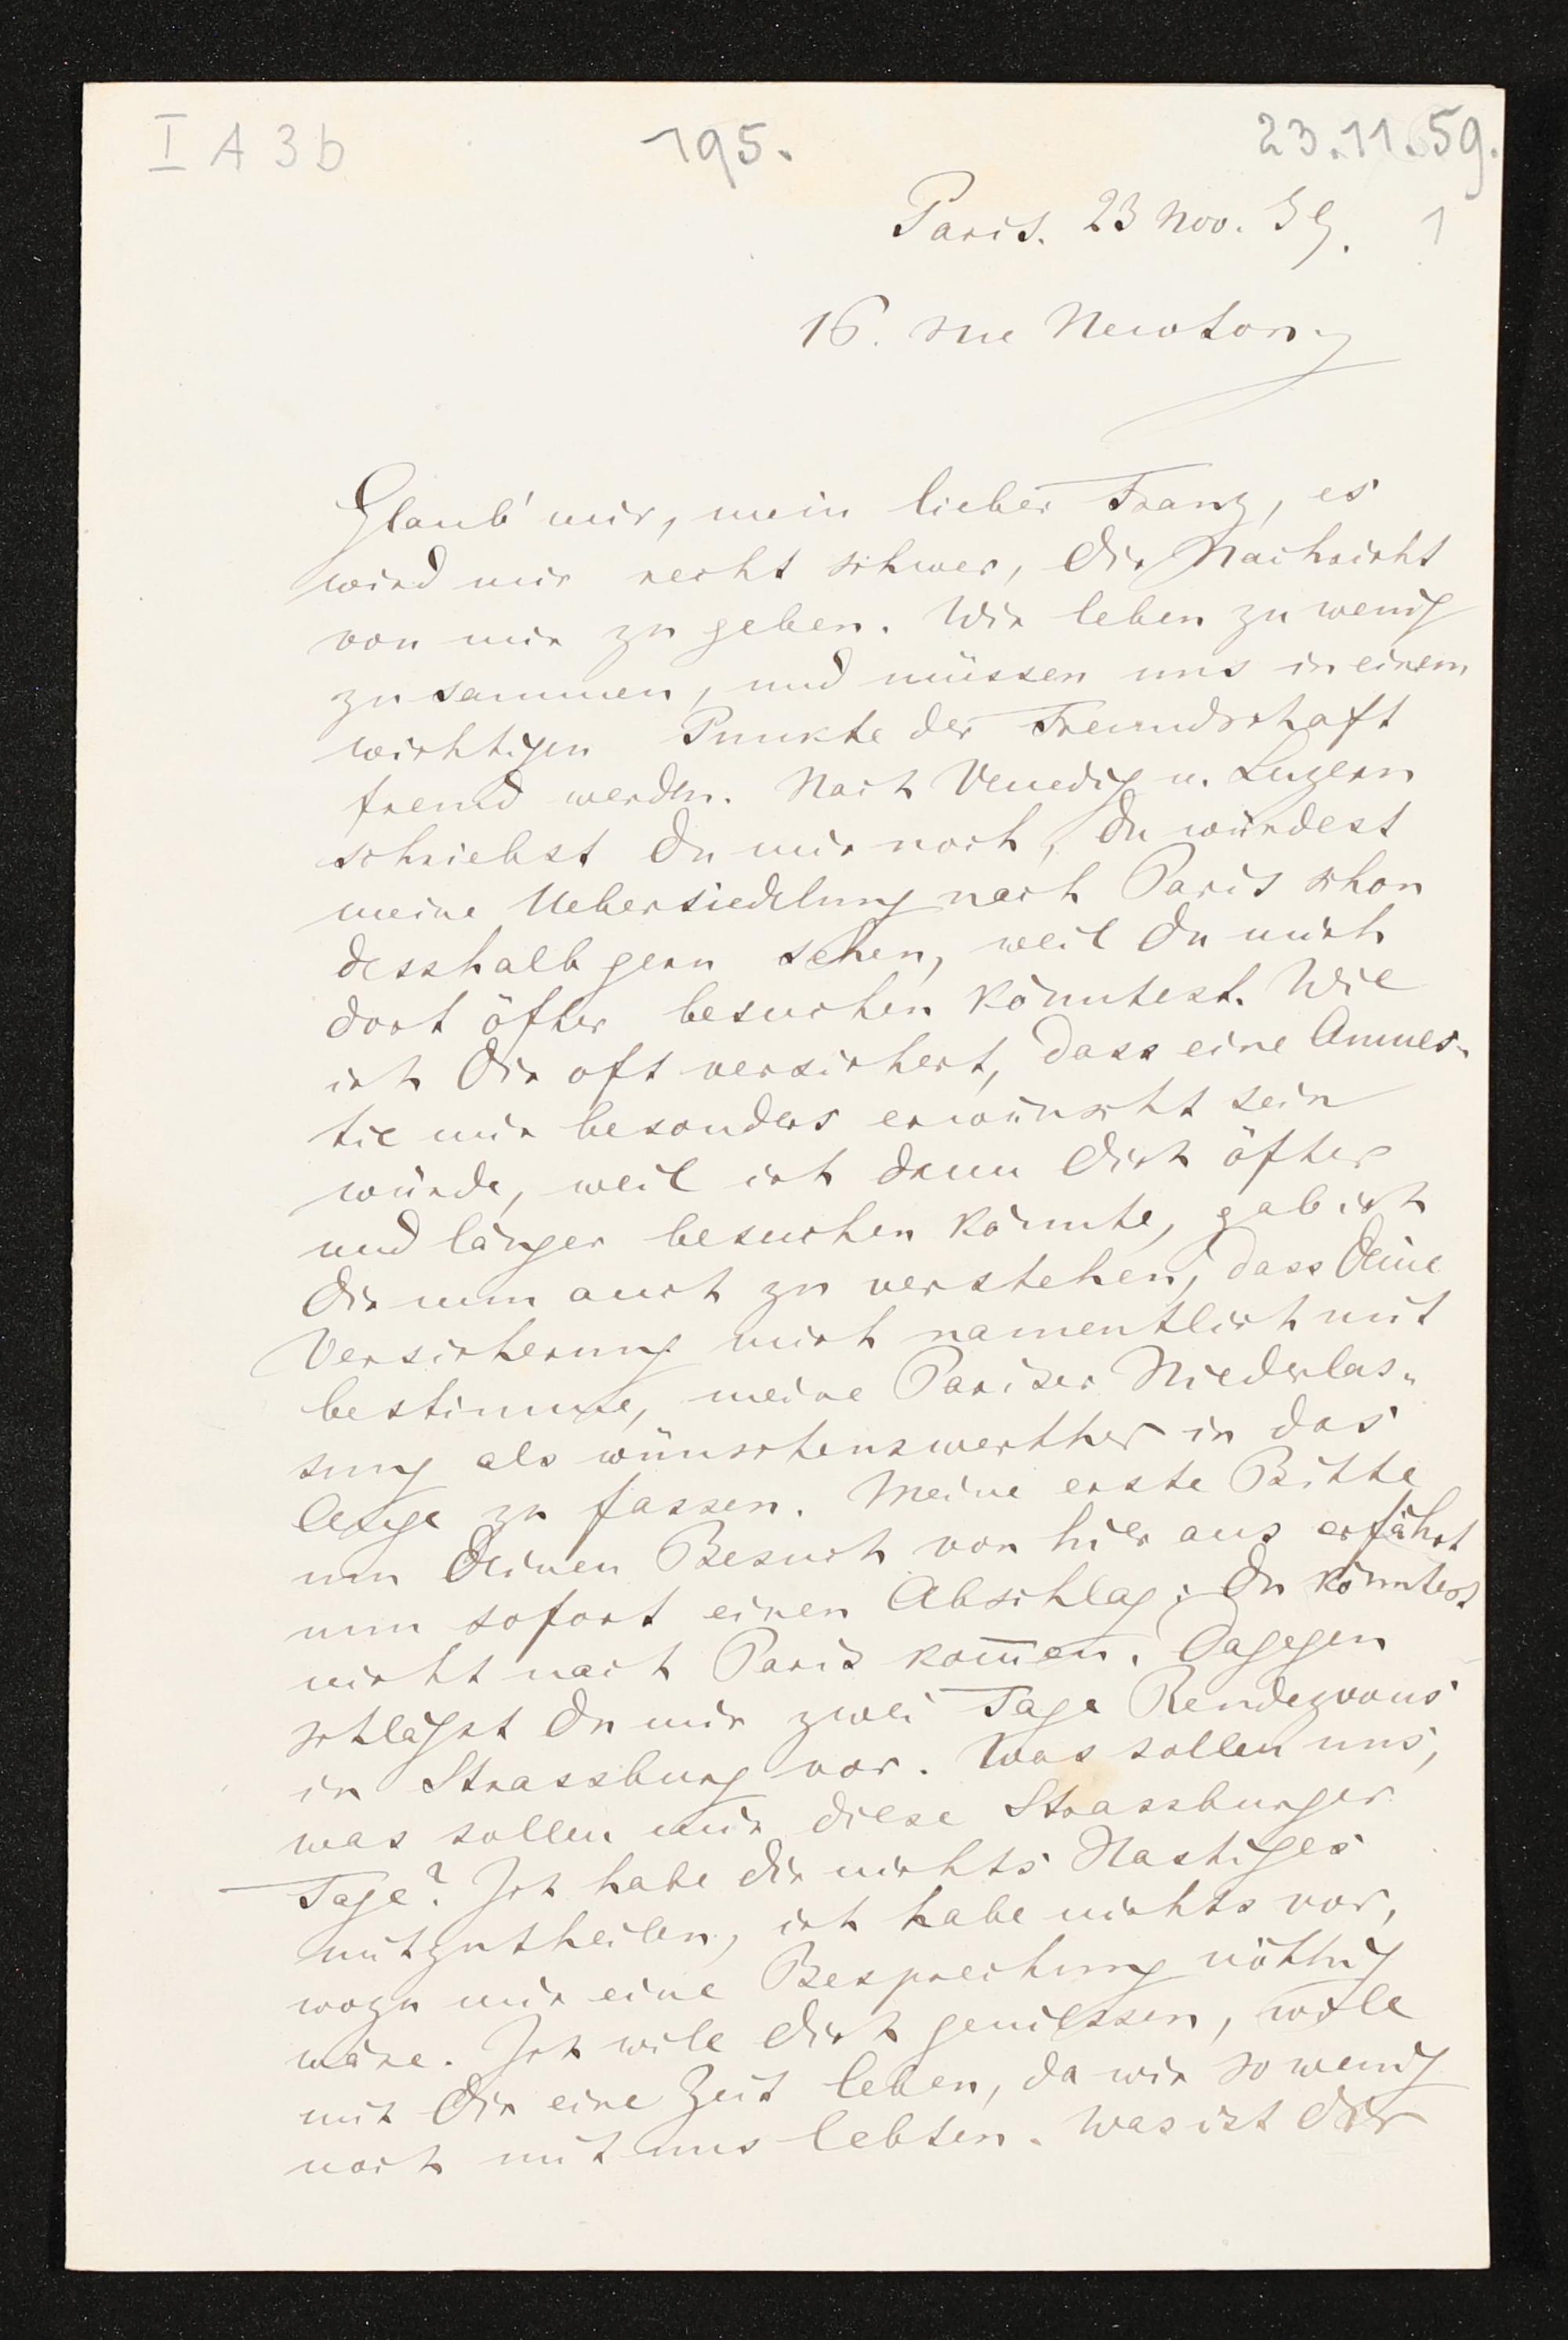 I A 3 b
195.
23.11.59.
Paris. 23 Nov. 59.
1
16. rue Newton.
Glaub' mir, mein lieber Franz, es
wird mir recht schwer, Dir Nachricht
von mir zu geben. Wir leben zu wenig
zusammen, und müssen uns in einem
wichtigen Punkte der Freundschaft
fremd werden. Nach Venedig u. Luzern
schriebst Du mir noch, Du würdest
meine Uebersiedelung nach Paris schon
desshalb gern sehen, weil Du mich
dort öfter besuchen könntest. Wie
ich Dir oft versichert, dass eine Amnes-
tie mir besonders erwünscht sein
würde, weil ich dann Dich öfter
und länger besuchen könnte, gab ich
Dir nun auch zu verstehen, dass Deine
Versicherung mich namentlich mit
bestimme, meine Pariser Niederlas-
sung als wünschenswerther in das
Auge zu fassen. Meine erste Bitte
um Deinen Besuch von hier aus erfährt
nun sofort einen Abschlag: Du könntest
nicht nach Paris kom̅en. Dagegen
schlägst Du mir zwei Tage Rendezvous
in Strassburg vor. Was sollen uns,
was sollen mir diese Strassburger
Tage? Ich habe Dir nichts Hastiges
mitzutheilen, ich habe nichts vor,
wozu mir eine Besprechung nöthig
wäre. Ich will Dich geniessen, will
mit Dir eine Zeit leben, da wir so wenig
noch mit uns lebten. Was ist Dir